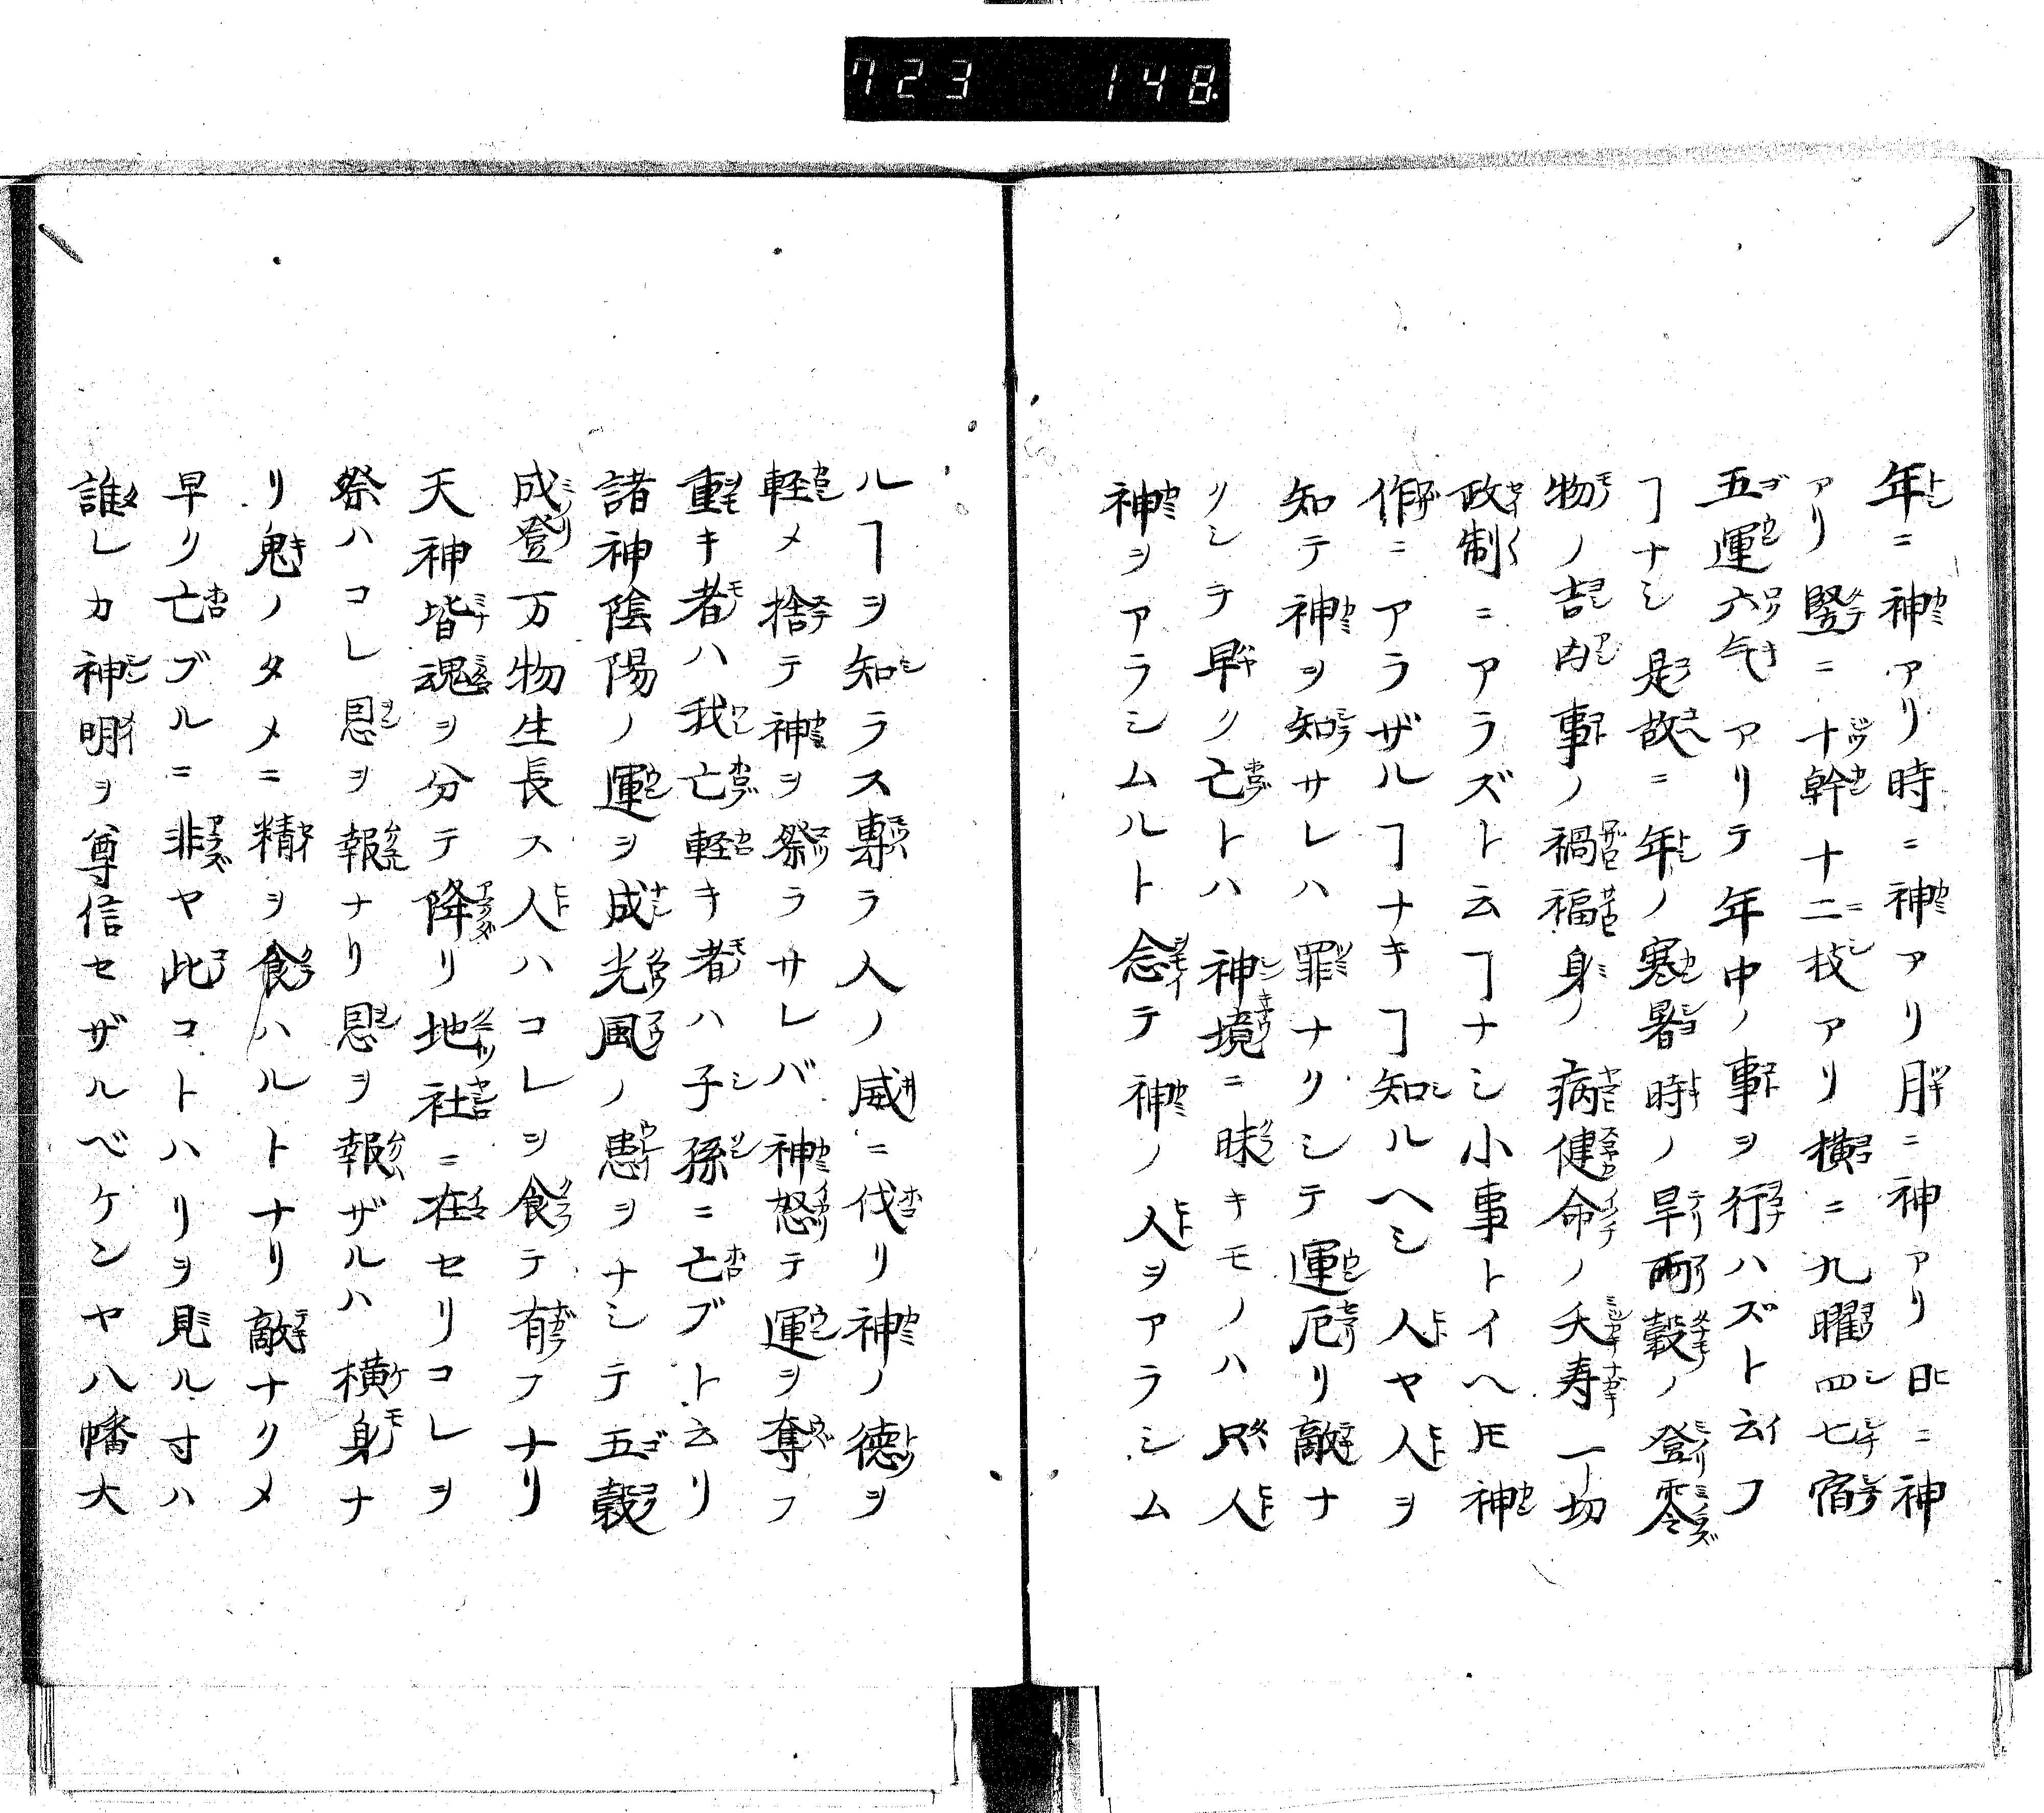 723 148
年ニ神アリ時ニ神アリ月ニ神アリ日ニ神
アリ竪ニ十幹十二枝アリ横ニ九曜四七宿
五運六气アリテ年中ノ事ヲ行ハズト云フ
ヿナシ是故ニ年ノ寒暑時ノ旱雨穀ノ登零
物ノ吉凶事ノ禍福身ノ病健命ノ夭寿一切
政制ニアラズト云ヿナシ小事トイヘ𪜈神
作ニアラザルヿナキヿ知ルヘシ人ヤ人ヲ
知テ神ヲ知サレハ罪ナクシテ運厄リ敵ナ
クシテ早ク亡トハ神境ニ昧キモノハ只人
神ヲアラシムルト念テ神ノ人ヲアラシム
ルヿヲ知ラス専ラ人ノ威ニ伐リ神ノ徳ヲ
軽メ捨テ神ヲ祭ラサレバ神怒テ運ヲ奪フ
重キ者ハ我亡軽キ者ハ子孫ニ亡ブト云リ
諸神陰陽ノ運ヲ成光風ノ恵ヲナシテ五穀
成登万物生長ス人ハコレヲ食テ有フナリ
天神皆魂ヲ分テ降リ地社ニ在セリコレヲ
祭ハコレ恩ヲ報ナリ恩ヲ報ザルハ横身ナ
リ鬼ノタメニ精ヲ食ハルトナリ敵ナクメ
早ク亡ブルニ非ヤ此コトハリヲ見ル寸ハ
誰レカ神明ヲ尊信セザルベケンヤ八幡大